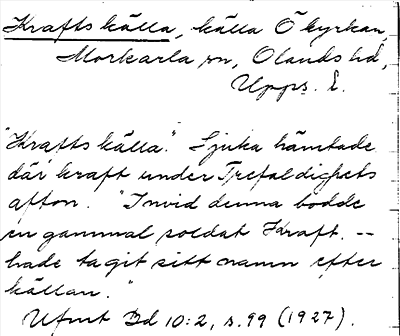 Kraftskälla, källa Ö kyrkan,
Morkarla sn, Olands hd,
Upps. l.
"Kraftskälla." Sjuka hämtade
där kraft under Trefaldighets
afton. "Invid denna bodde
en gammal soldat Kraft. --
hade tagit sitt namn efter
källan."
Ufmt Bd 10:2, s. 99 (1927).